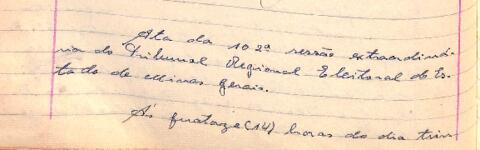 Ata da 102ª sessão extraordiná-
ria do Tribunal Regional Eleitoral do Es-
tado de Minas Gerais.
Ás quatorze (14) horas do dia trin